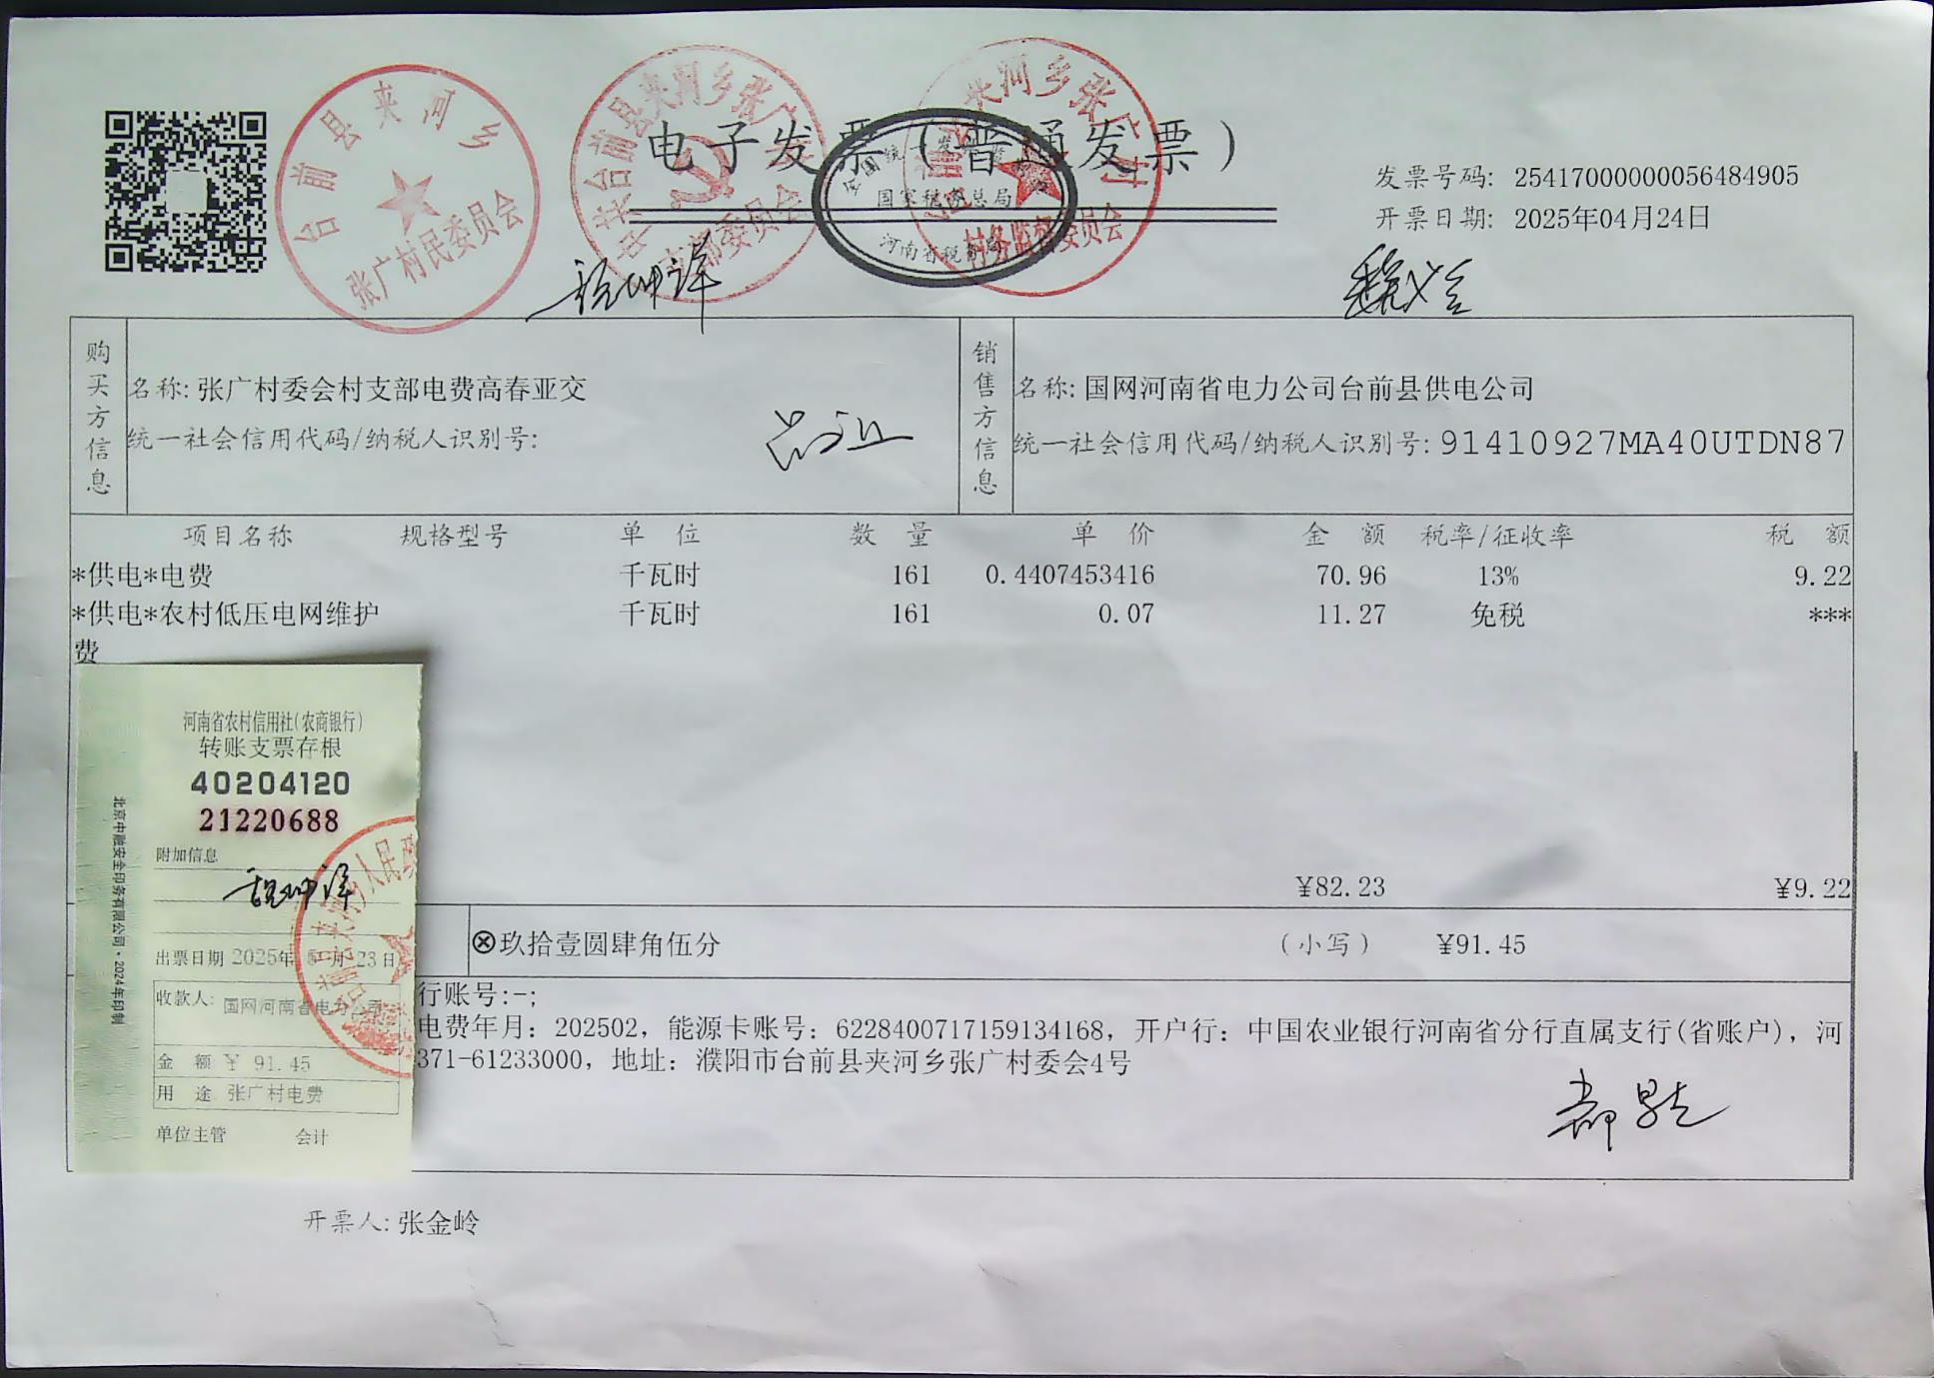 电子发票（普通发票）
发票号码: 25417000000056484905
开票日期: 2025年04月24日
台前县夹河乡
张广村民委员会
中共台前县夹河乡张广
支部委员会
夹河乡张广村
村务监督委员会
全国统一发票
国家税务总局
河南省税务局
购买方信息
名称: 张广村委会村支部电费高春亚交
统一社会信用代码/纳税人识别号:
销售方信息
名称: 国网河南省电力公司台前县供电公司
统一社会信用代码/纳税人识别号: 91410927MA40UTDN87
项目名称 规格型号 单 位 数 量 单 价 金 额 税率/征收率 税 额
*供电*电费 千瓦时 161 0.4407453416 70.96 13% 9.22
*供电*农村低压电网维护 千瓦时 161 0.07 11.27 免税 ***
费
¥82.23 ¥9.22
⊗玖拾壹圆肆角伍分 （小写） ¥91.45
行账号:-;
电费年月: 202502, 能源卡账号: 6228400717159134168, 开户行: 中国农业银行河南省分行直属支行(省账户), 河
371-61233000, 地址: 濮阳市台前县夹河乡张广村委会4号
河南省农村信用社(农商银行)
转账支票存根
40204120
21220688
附加信息
出票日期 2025年 月 23日
收款人: 国网河南省电力公司
金 额 ¥ 91.45
用 途 张广村电费
单位主管 会计
北京中融安全印务有限公司·2024年印制
开票人: 张金岭